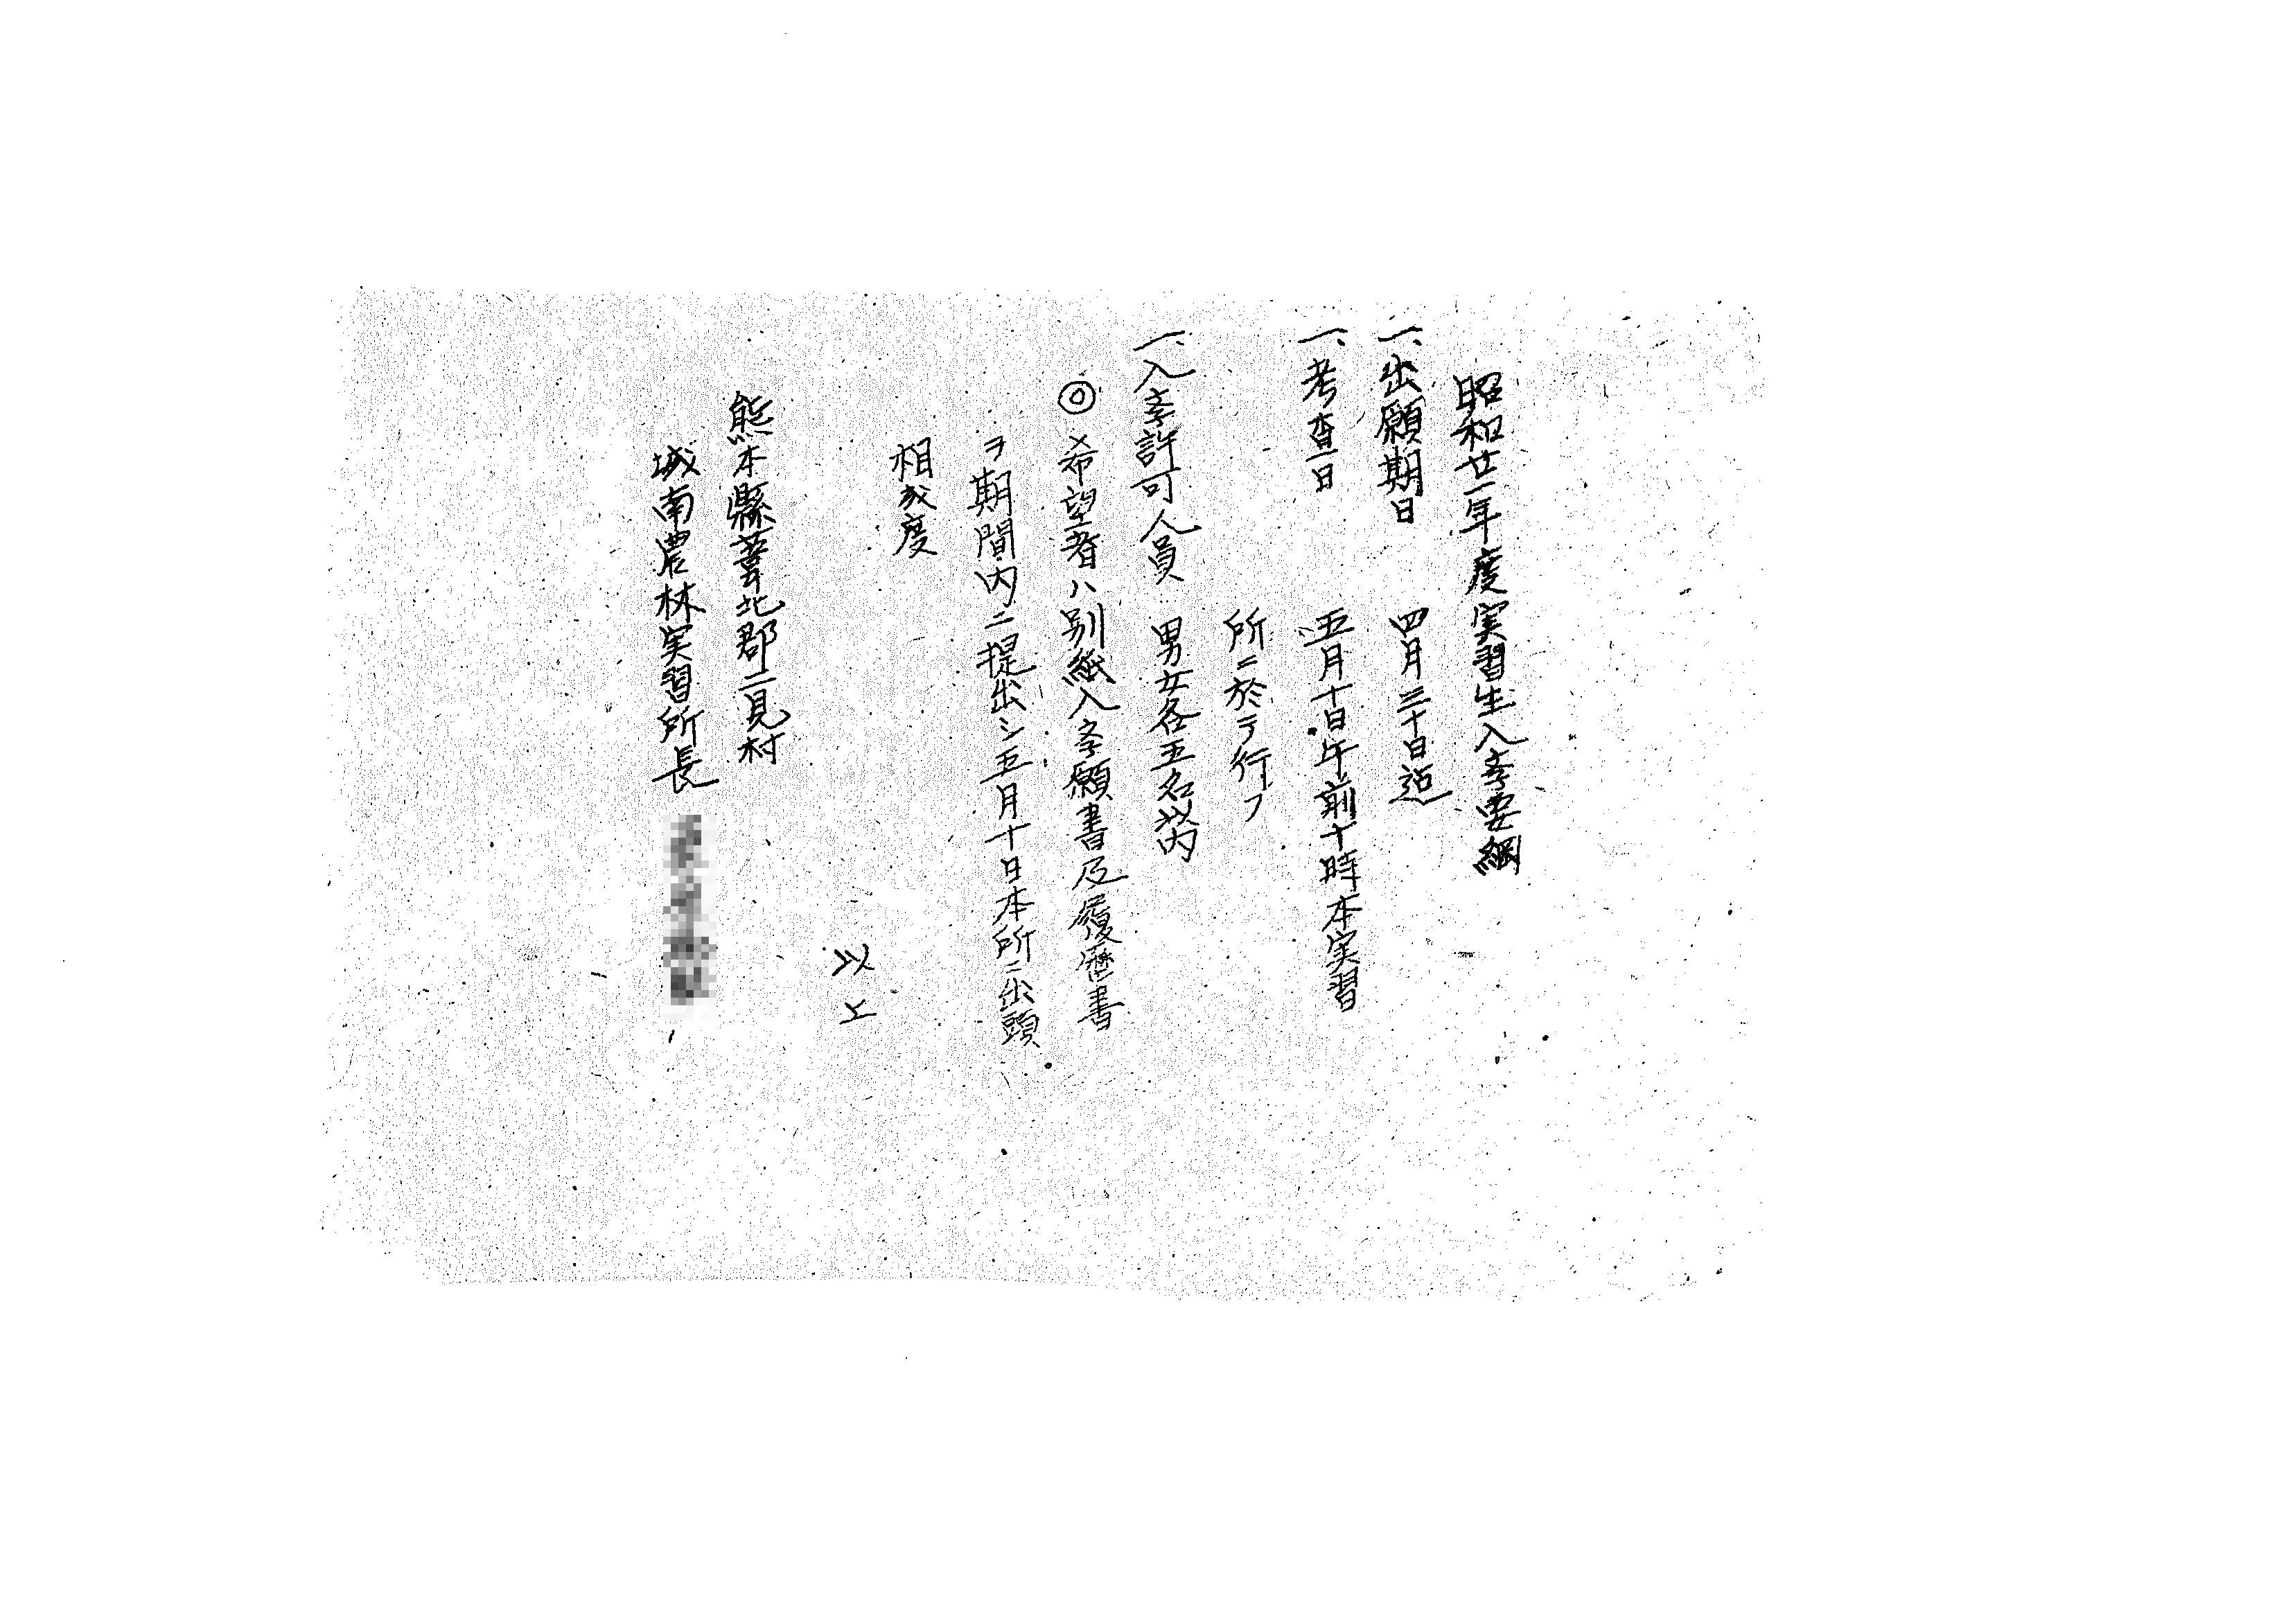 昭和廿一年度実習生入学要綱
一、出願期日　四月三十日迄
一、考査日　五月十日午前十時本実習
所ニ於テ行フ
一、入学許可人員　男女各五名以内
◎希望者ハ別紙入学願書及履歴書
ヲ期間内ニ提出シ五月十日本所ニ出頭
相成度
以上
熊本縣葦北郡二見村
城南農林実習所長